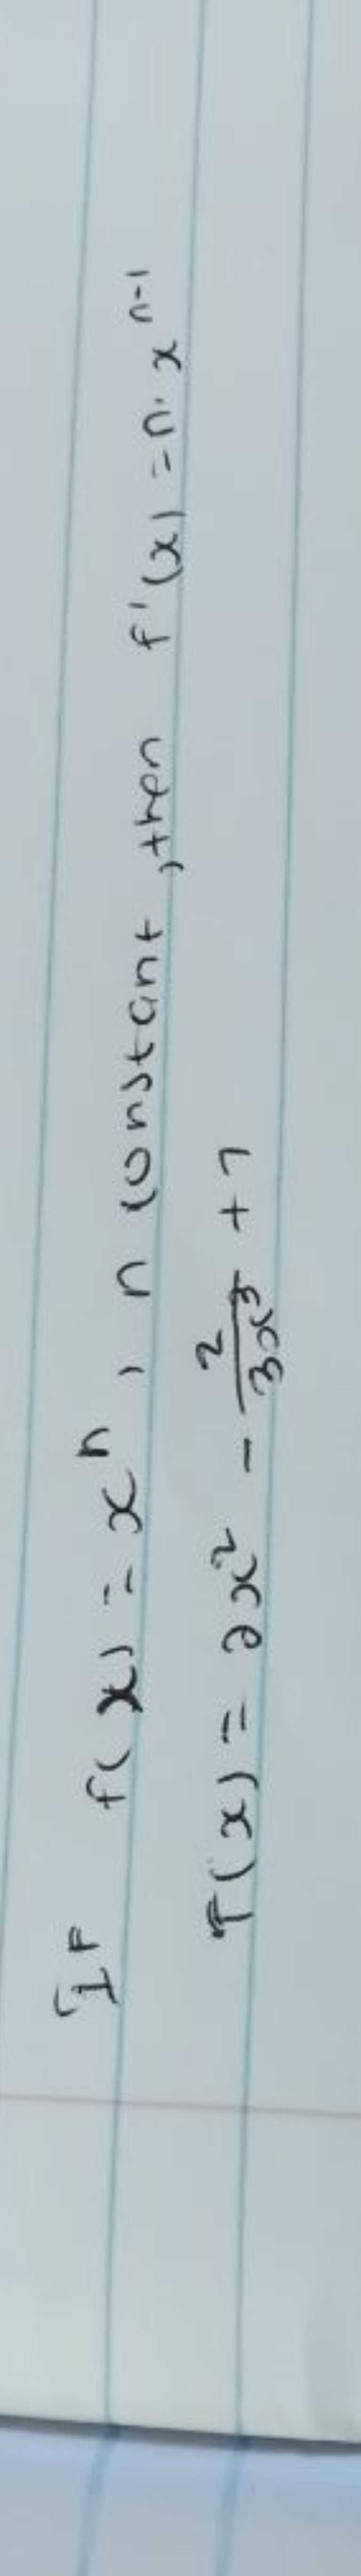 If f(x) = xⁿ, n constant, then f'(x) = n·xⁿ⁻¹
f(x) = 2x² - 2/(3x³) + 7